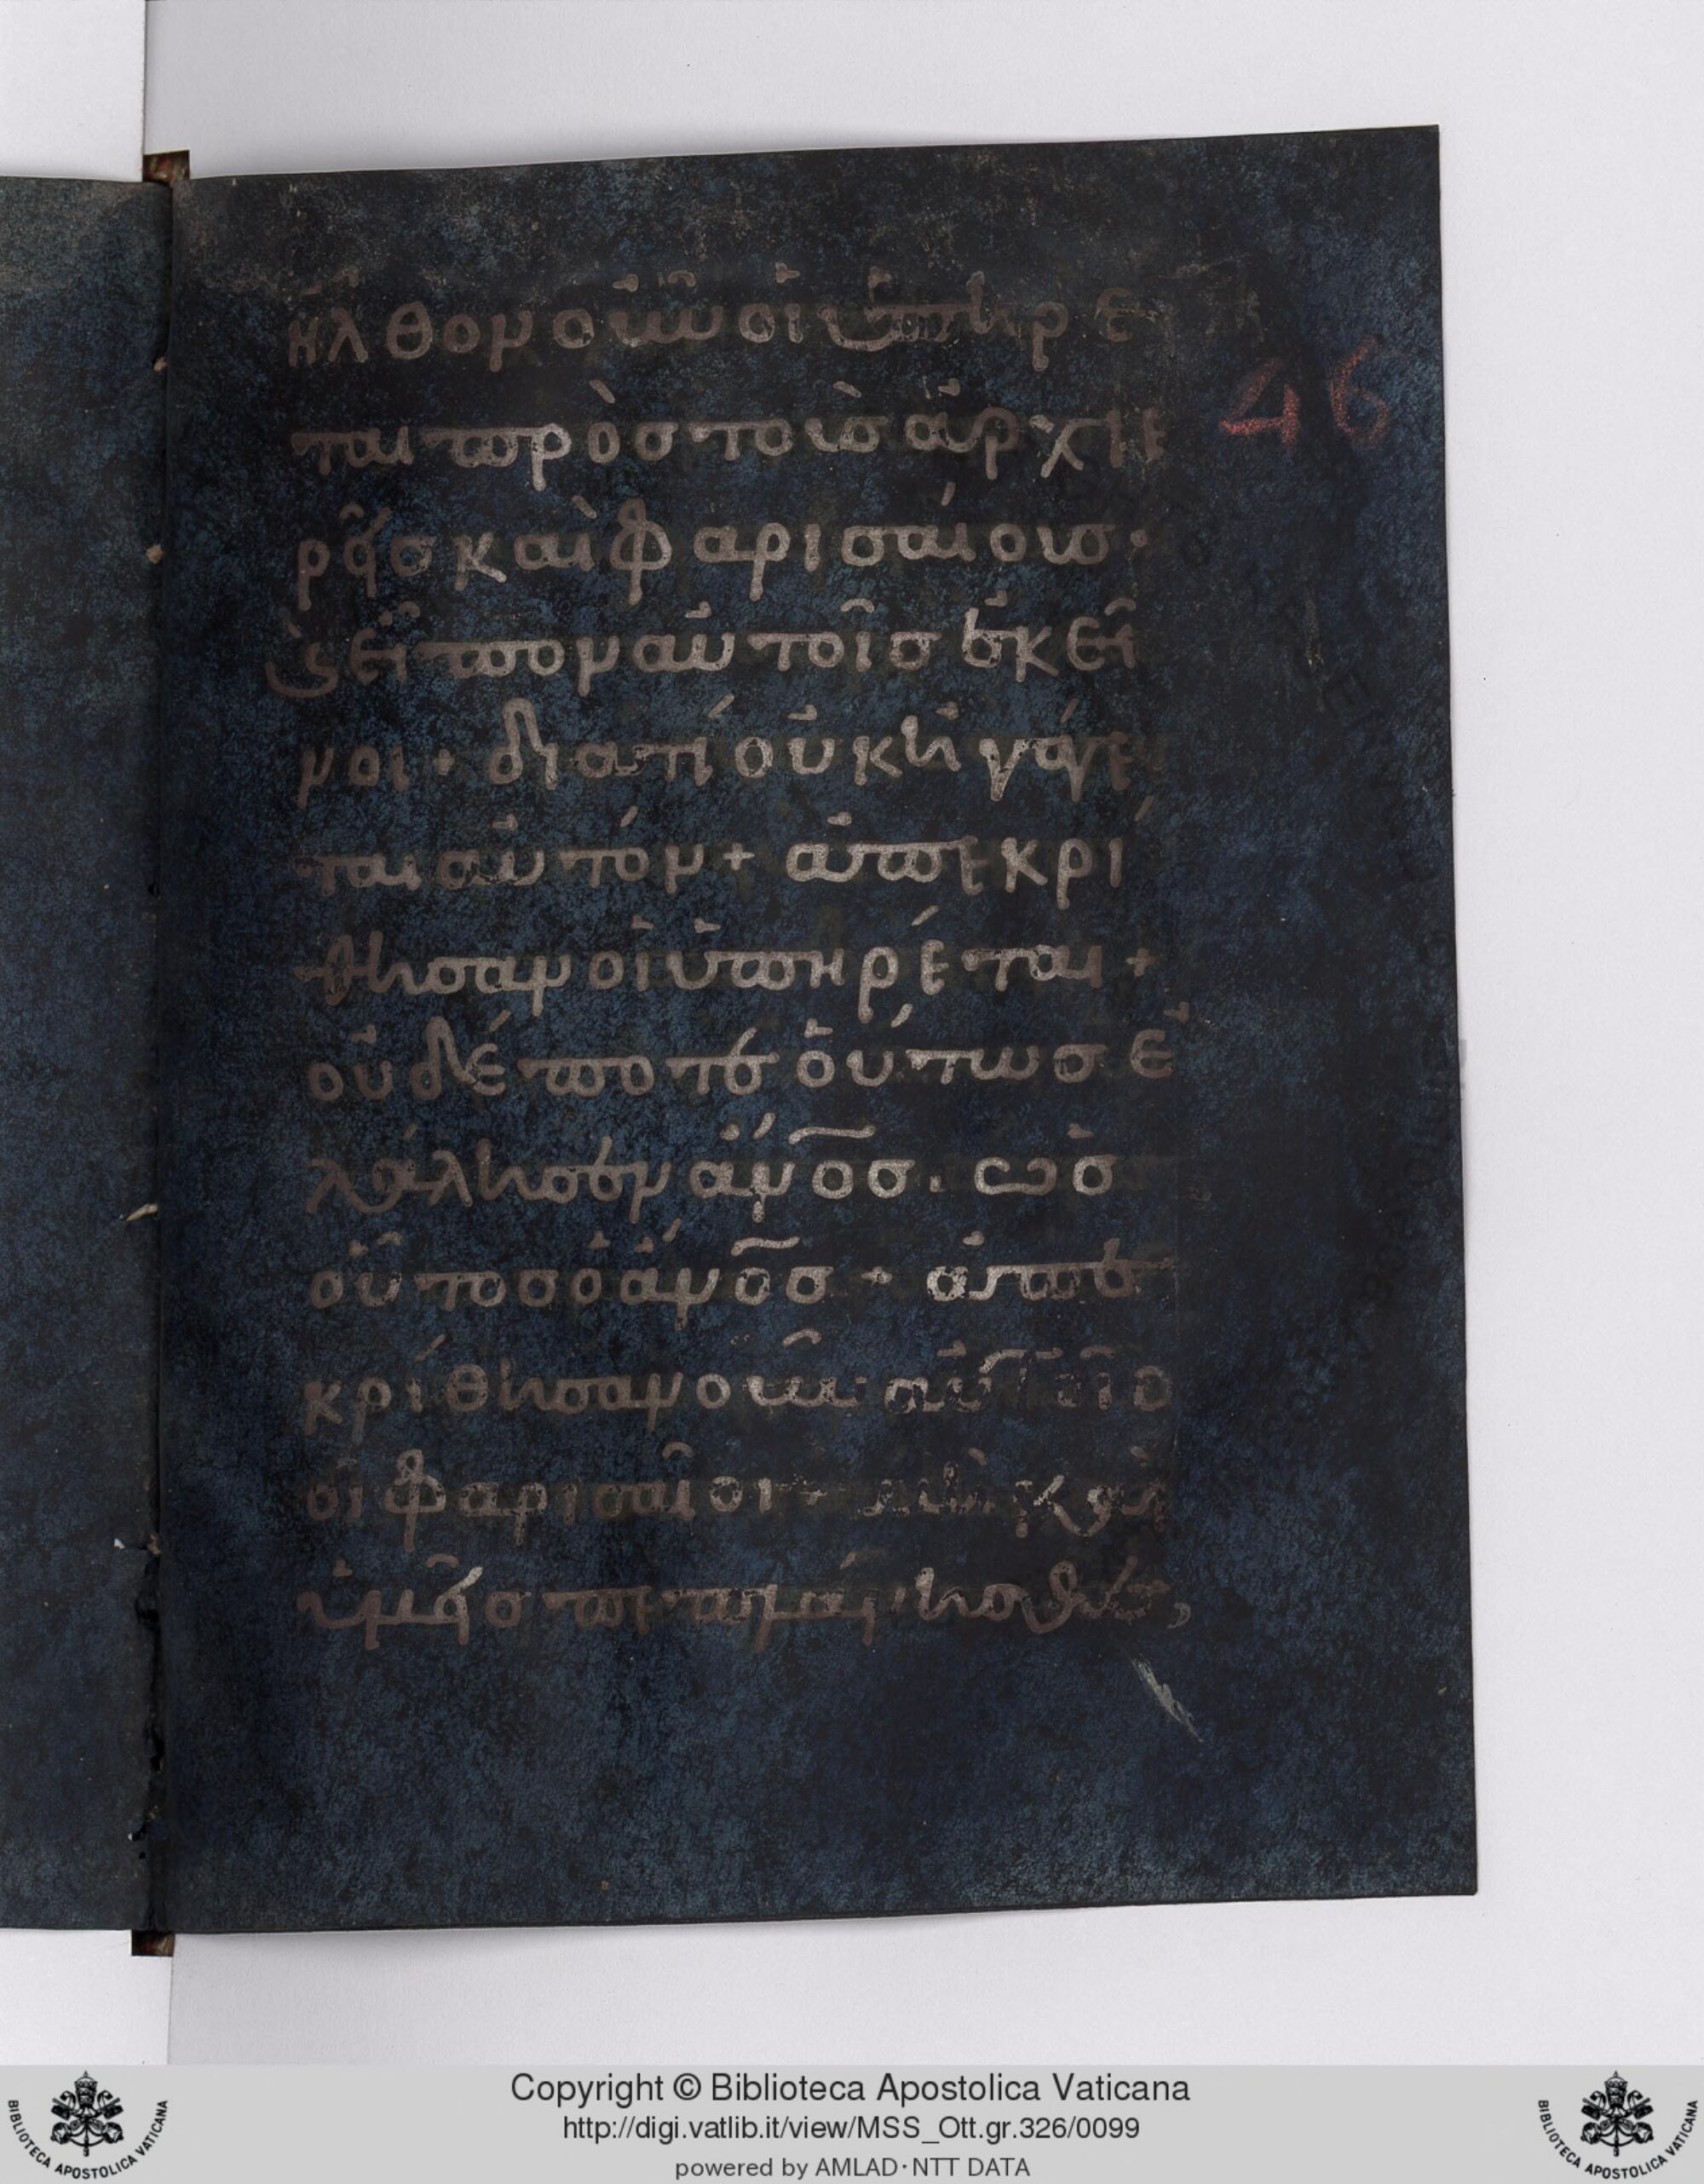 ἦλθον οὖν οἱ ὑπηρέ
ται πρὸς τοὺς ἀρχιε
ρεῖς καὶ φαρισαίους·
46
καὶ εἶπον αὐτοῖς ἐκεῖ
νοι + διατί οὐκ ἠγάγε
ται αὐτόν + ἀπεκρί
θησαν οἱ ὑπηρέται +
οὐδέποτε οὕτως ἐ
λάλησεν ἄν̅ο̅ς̅. ὡς
οὗτος ὁ ἄν̅ο̅ς̅ + ἀπε
κρίθησαν οὖν αὐτοῖς
οἱ φαρισαῖοι + μὴ καὶ
ὑμεῖς πεπλάνησθε,
Copyright © Biblioteca Apostolica Vaticana
http://digi.vatlib.it/view/MSS_Ott.gr.326/0099
powered by AMLAD·NTT DATA
BIBLIOTECA APOSTOLICA VATICANA
BIBLIOTECA APOSTOLICA VATICANA